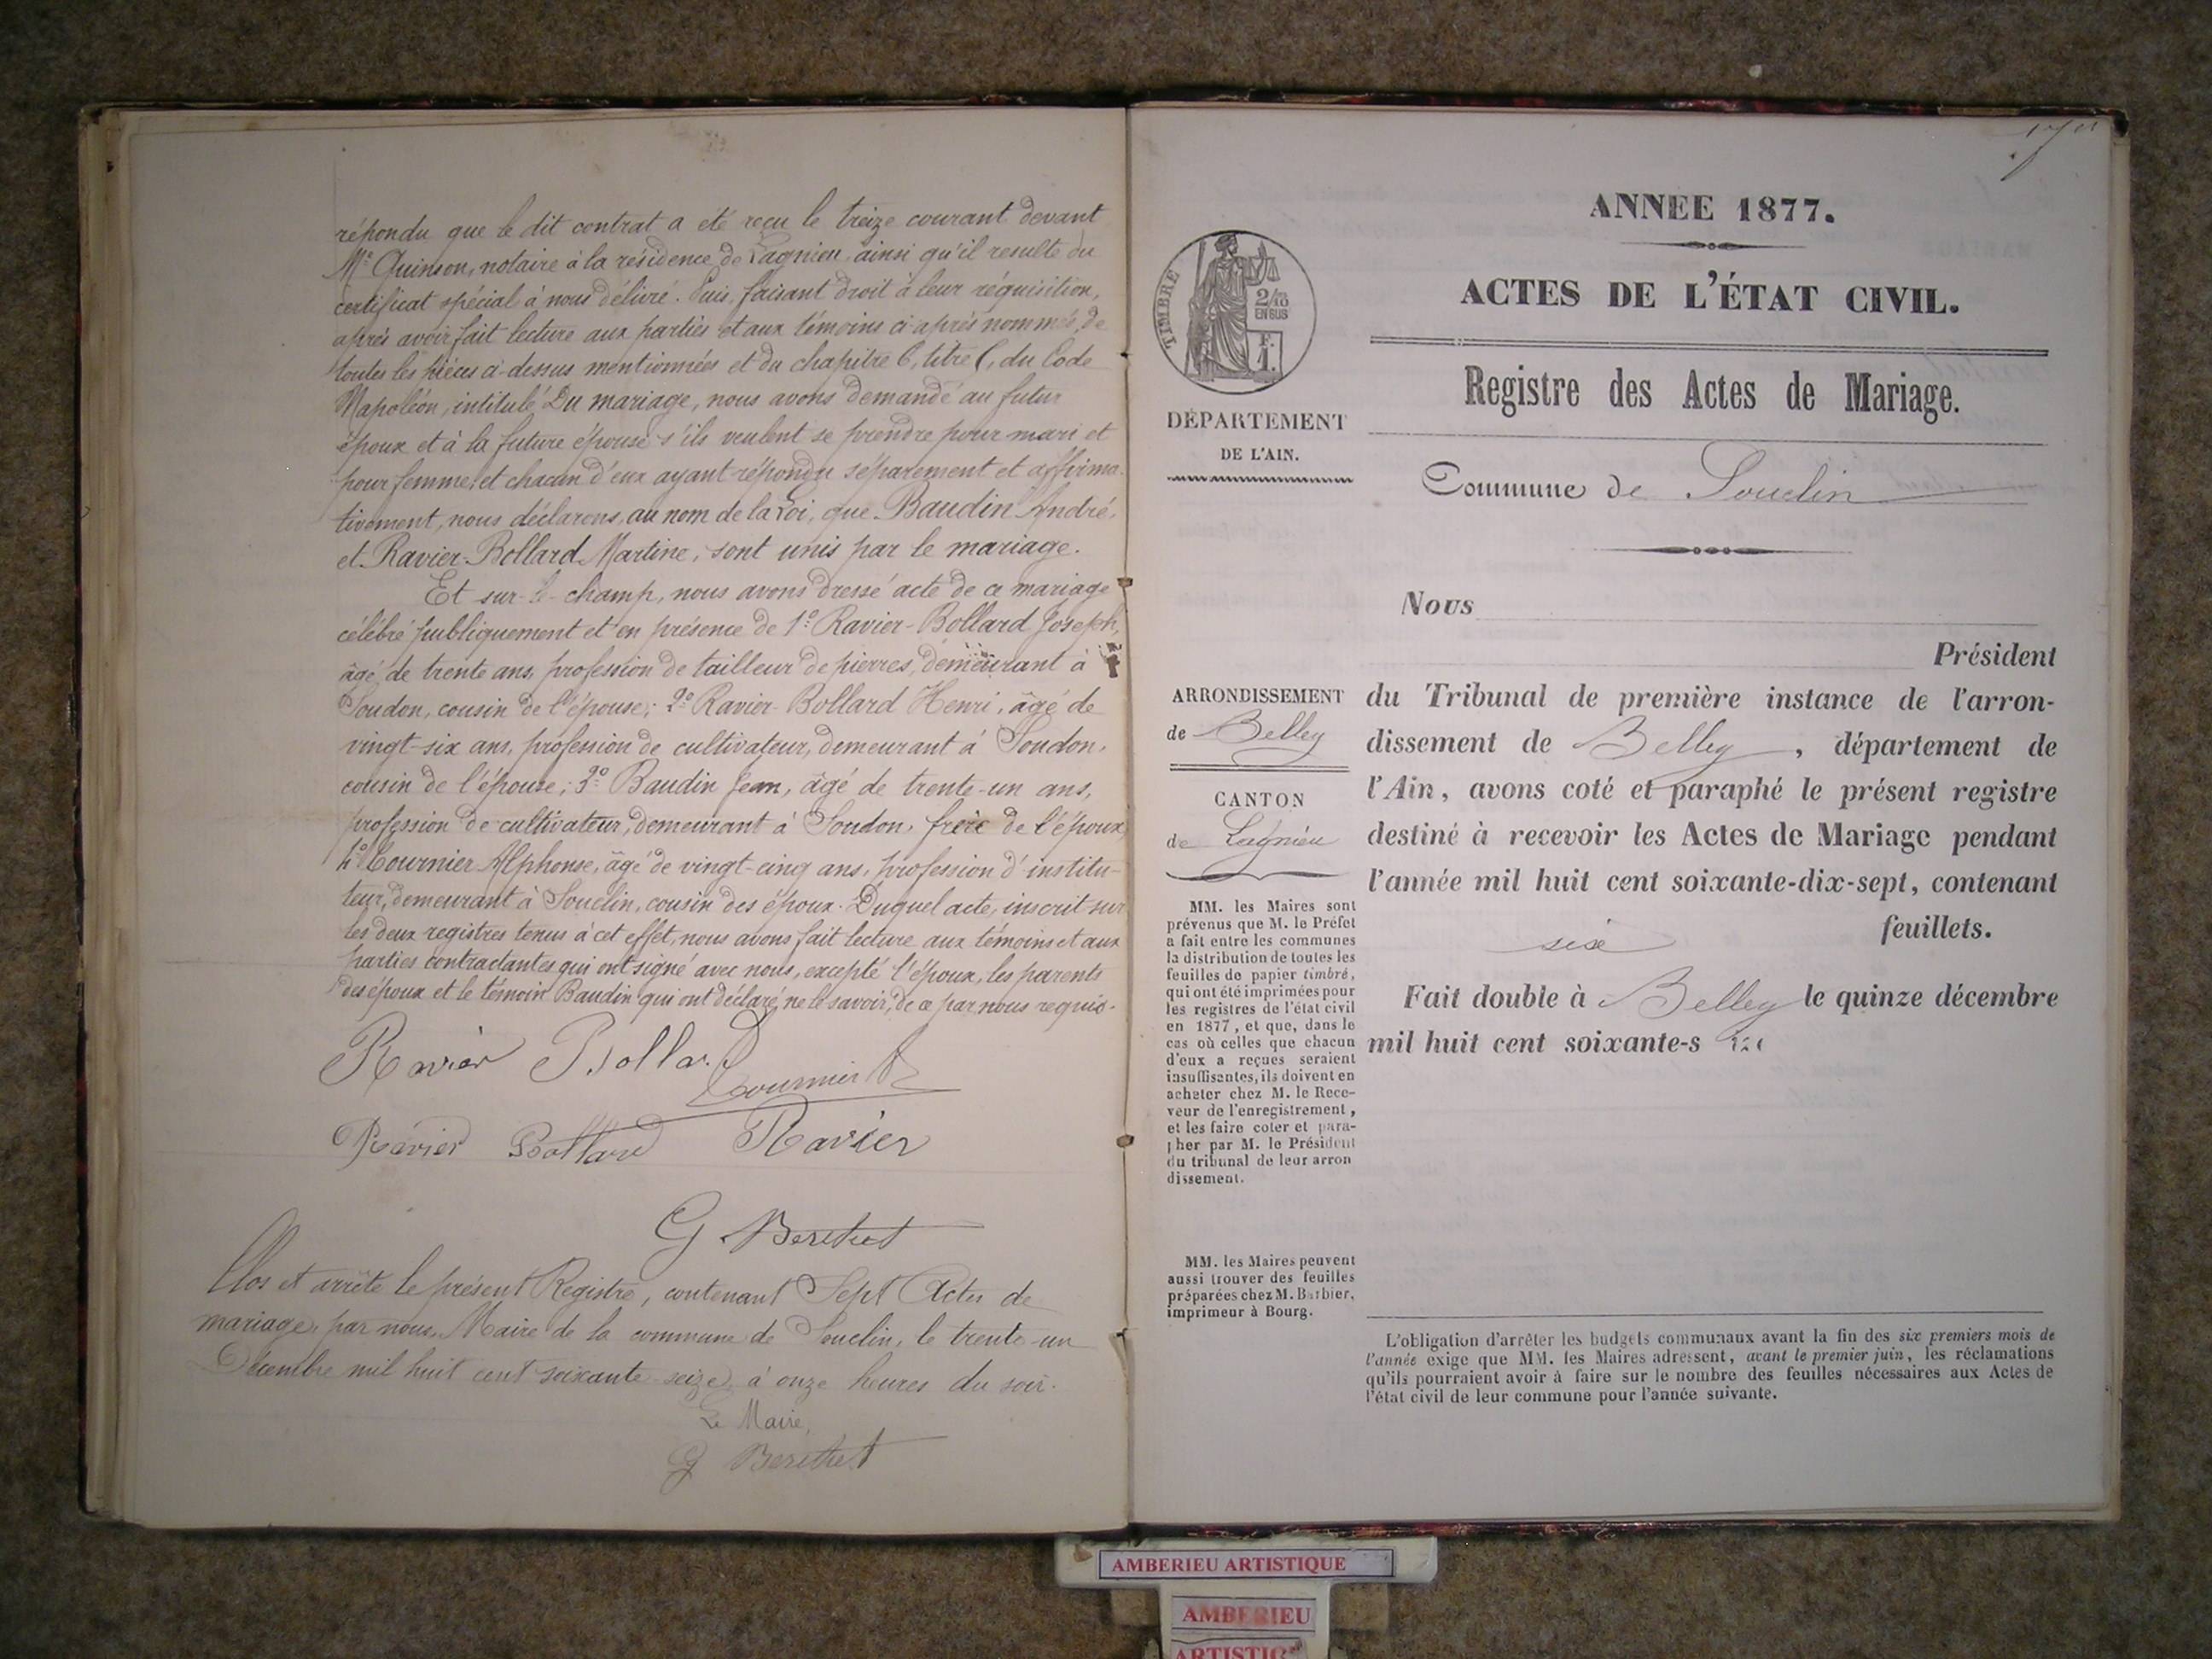 répondu que le dit contrat a été reçu le treize courant devant
Me Quinson, notaire à la résidence de Lagnieu, ainsi qu'il resulte du
certificat spécial à nous délivré. Puis, faisant droit à leur réquisition,
après avoir fait lecture aux parties et aux témoins ci-après nommés, de
toutes les pièces ci-dessus mentionnées et du chapitre 6, titre (, du Code
Napoléon, intitulé Du mariage, nous avons demandé au futur
époux et à la future épouse s'ils veulent se prendre pour mari et
pour femme, et chacun d'eux ayant répondu séparement et affirma-
tivement, nous déclarons, au nom de la loi, que Baudin André,
et Ravier-Bollard Martine, sont unis par le mariage.
Et sur-le-champ, nous avons dressé acte de ce mariage
célébré publiquement et en présence de 1° Ravier-Bollard Joseph,
âgé de trente ans, profession de tailleur de pierres, demeurant à
Soudon, cousin de l'épouse; 2° Ravier-Bollard Henri, âgé de
vingt-six ans, profession de cultivateur, demeurant à Soudon,
cousin de l'épouse; 3° Baudin Jean, âgé de trente-un ans,
profession de cultivateur, demeurant à Soudon, frère de l'époux,
4° Cournier Alphonse, âgé de vingt-cinq ans, profession d'institu-
teur, demeurant à Souclin, cousin des époux. Duquel acte, inscrit sur
les deux registres tenus à cet effet, nous avons fait lecture aux témoins et aux
parties contractantes qui ont signé avec nous, excepté l'époux, les parents
des époux et le témoin Baudin qui ont déclaré ne le savoir, de ce par nous requis.
Ravier Bollard
Cournier A
Ravier Bollard Ravier
G Berthet
Clos et arrêté le présent Registre, contenant Sept Actes de
mariage, par nous, Maire de la commune de Souclin, le trente-un
Décembre mil huit cent soixante-seize, à onze heures du soir.
Le Maire,
G Berthet
ANNEE 1877.
ACTES DE L'ÉTAT CIVIL.
Registre des Actes de Mariage.
Commune de Souclin
TIMBRE
2/10
EN SUS
F.
1.
DÉPARTEMENT
DE L'AIN.
ARRONDISSEMENT
de Belley
CANTON
de Lagnieu
MM. les Maires sont
prévenus que M. le Préfet
a fait entre les communes
la distribution de toutes les
feuilles de papier timbré,
qui ont été imprimées pour
les registres de l'état civil
en 1877, et que, dans le
cas où celles que chacun
d'eux a reçues seraient
insuffisantes, ils doivent en
acheter chez M. le Rece-
veur de l'enregistrement,
et les faire coter et para-
pher par M. le Président
du tribunal de leur arron
dissement.
MM. les Maires peuvent
aussi trouver des feuilles
préparées chez M. Barbier,
imprimeur à Bourg.
Nous
Président
du Tribunal de première instance de l'arron-
dissement de Belley, département de
l'Ain, avons coté et paraphé le présent registre
destiné à recevoir les Actes de Mariage pendant
l'année mil huit cent soixante-dix-sept, contenant
six feuillets.
Fait double à Belley le quinze décembre
mil huit cent soixante-s
L'obligation d'arrêter les budgets communaux avant la fin des six premiers mois de
l'année exige que MM. les Maires adressent, avant le premier juin, les réclamations
qu'ils pourraient avoir à faire sur le nombre des feuilles nécessaires aux Actes de
l'état civil de leur commune pour l'année suivante.
AMBERIEU ARTISTIQUE
AMBERIEU